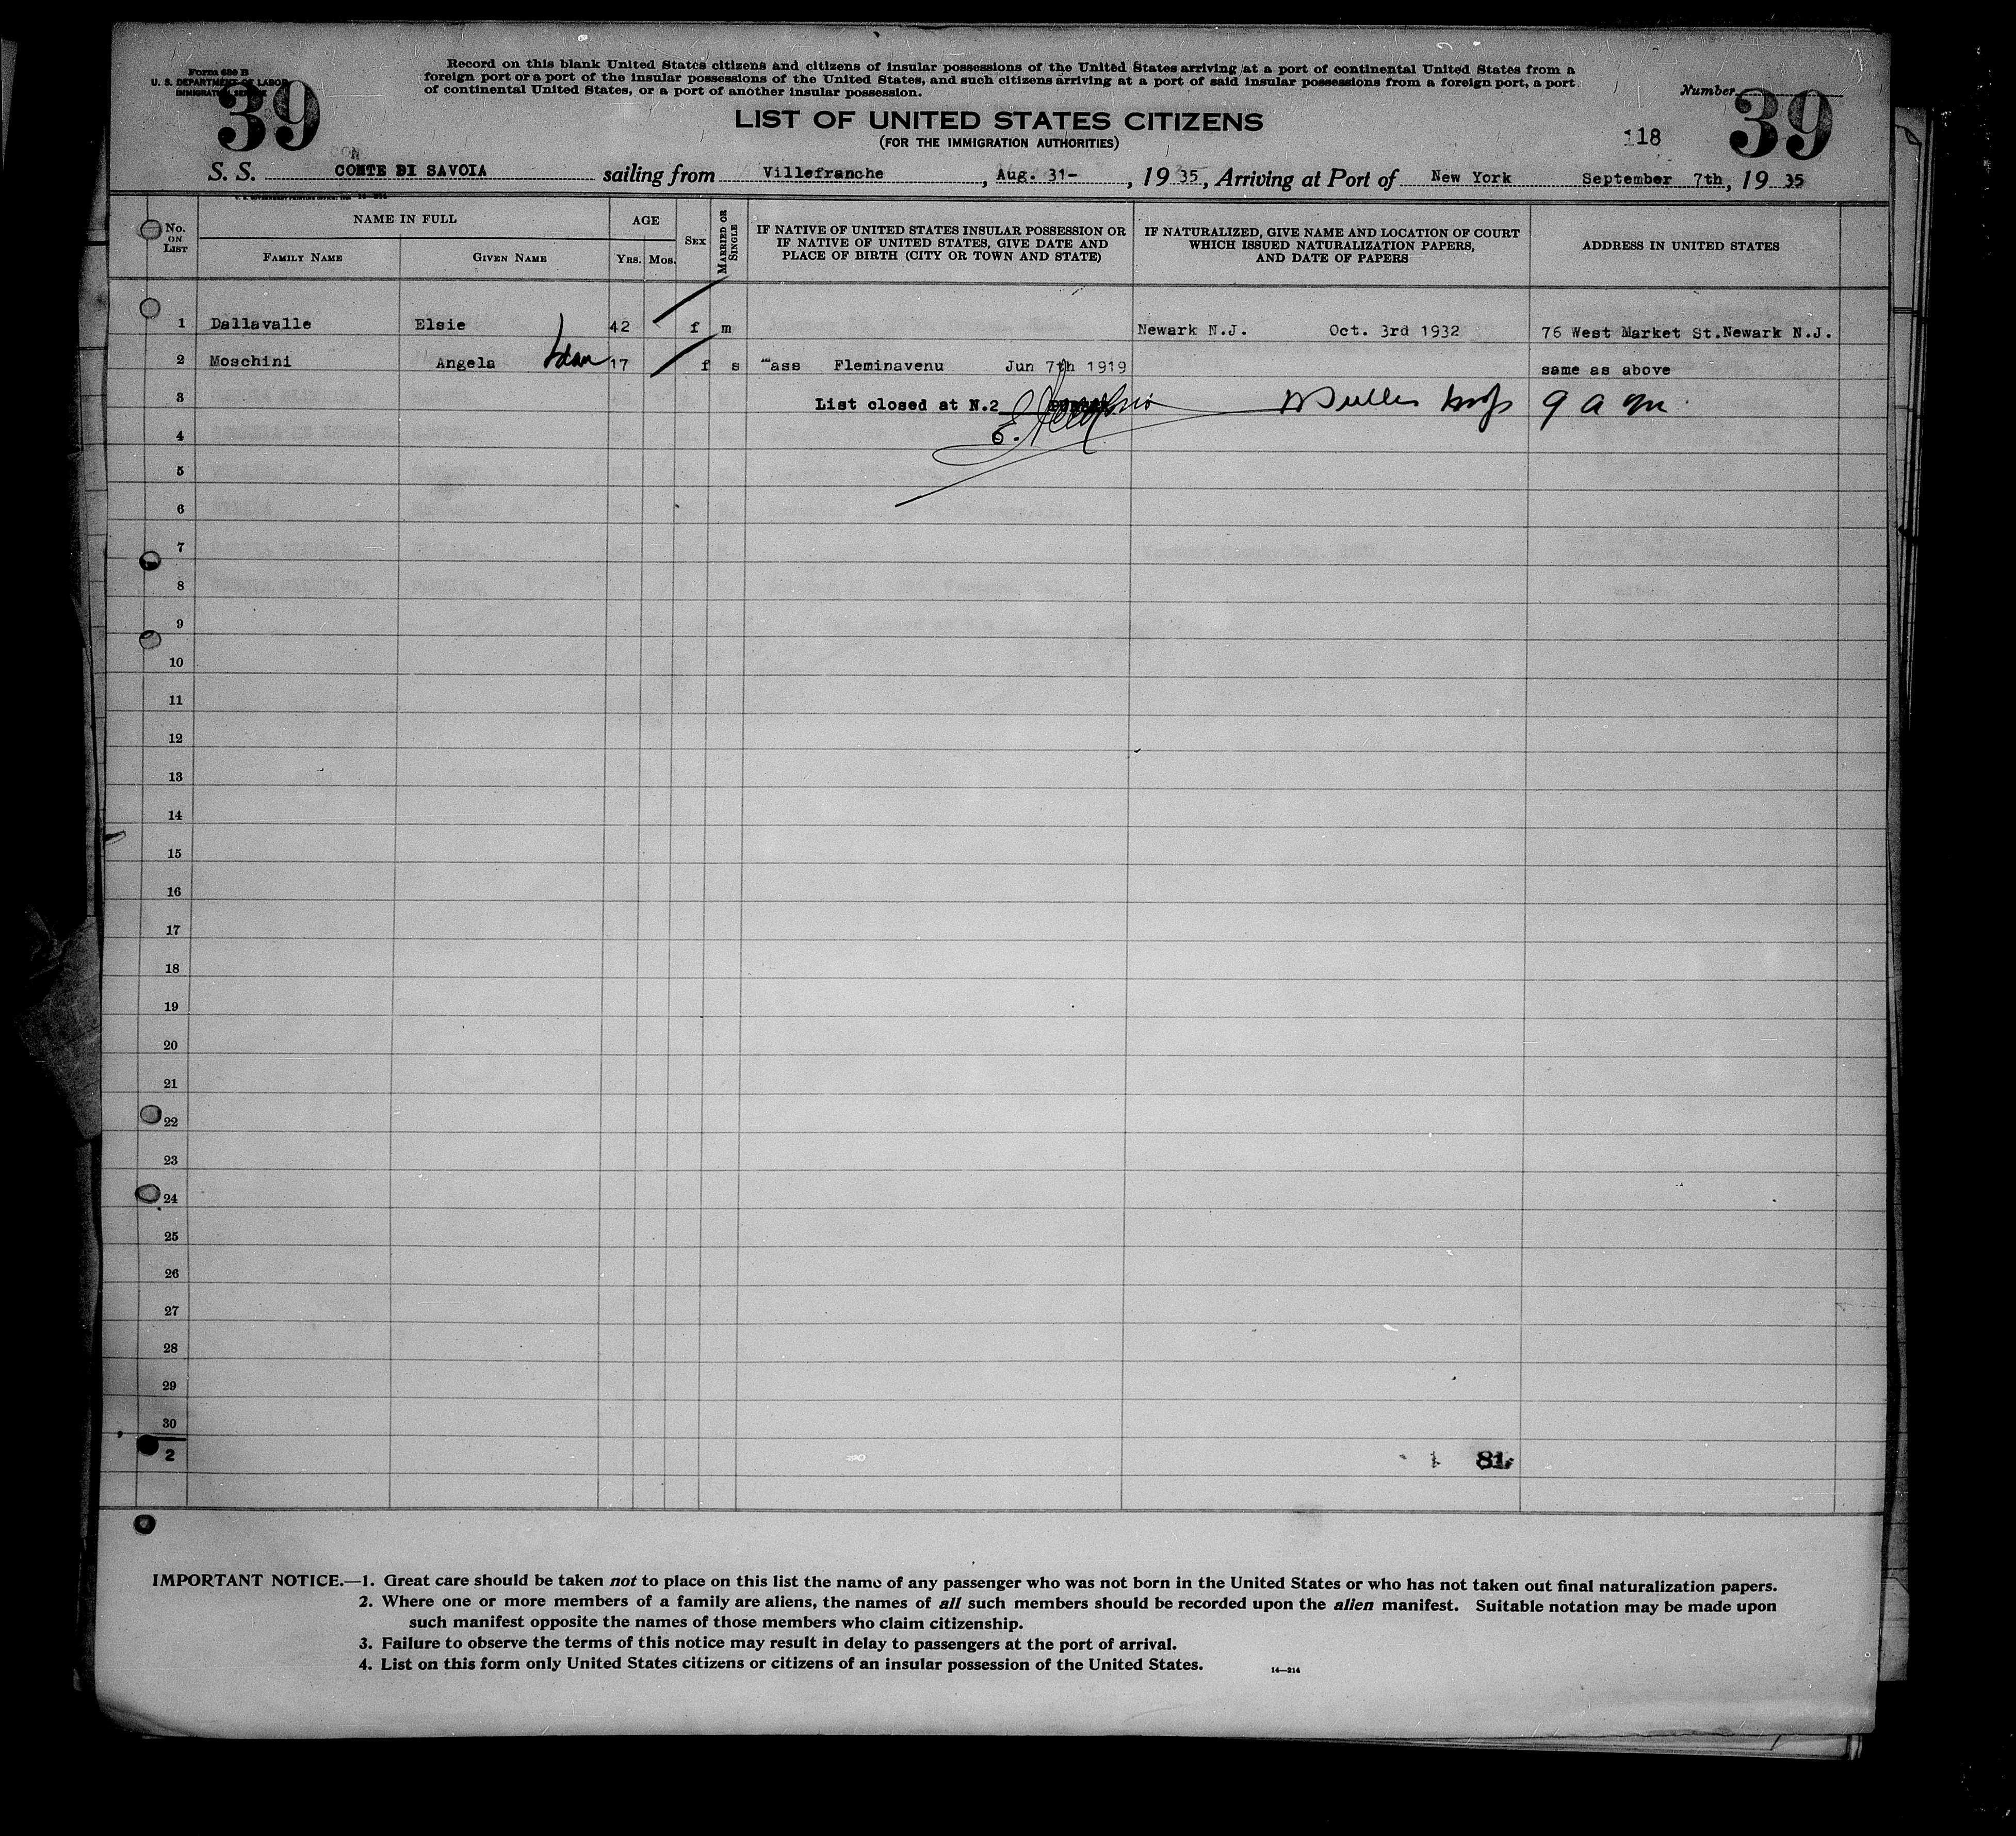 Form 630 B
U. S. DEPARTMENT OF LABOR
IMMIGRATION SERVICE
39
Record on this blank United States citizens and citizens of insular possessions of the United States arriving at a port of continental United States from a
foreign port or a port of the insular possessions of the United States, and such citizens arriving at a port of said insular possessions from a foreign port, a port
of continental United States, or a port of another insular possession.
Number
39
LIST OF UNITED STATES CITIZENS
(FOR THE IMMIGRATION AUTHORITIES)
118
S. S. CONTE DI SAVOIA sailing from Villefranche, Aug. 31-, 1935, Arriving at Port of New York September 7th, 1935
No. ON LIST
NAME IN FULL
FAMILY NAME
GIVEN NAME
AGE
YRS. MOS.
SEX
MARRIED OR SINGLE
IF NATIVE OF UNITED STATES INSULAR POSSESSION OR
IF NATIVE OF UNITED STATES, GIVE DATE AND
PLACE OF BIRTH (CITY OR TOWN AND STATE)
IF NATURALIZED, GIVE NAME AND LOCATION OF COURT
WHICH ISSUED NATURALIZATION PAPERS,
AND DATE OF PAPERS
ADDRESS IN UNITED STATES
1 Dallavalle Elsie 42 f m Newark N.J. Oct. 3rd 1932 76 West Market St.Newark N.J.
2 Moschini Angela 17 f s ass Fleminavenu Jun 7th 1919 same as above
3 List closed at N.2 9 a m
4
5
6
7
8
9
10
11
12
13
14
15
16
17
18
19
20
21
22
23
24
25
26
27
28
29
30
2
81
IMPORTANT NOTICE.—1. Great care should be taken not to place on this list the name of any passenger who was not born in the United States or who has not taken out final naturalization papers.
2. Where one or more members of a family are aliens, the names of all such members should be recorded upon the alien manifest. Suitable notation may be made upon
such manifest opposite the names of those members who claim citizenship.
3. Failure to observe the terms of this notice may result in delay to passengers at the port of arrival.
4. List on this form only United States citizens or citizens of an insular possession of the United States.
14—214